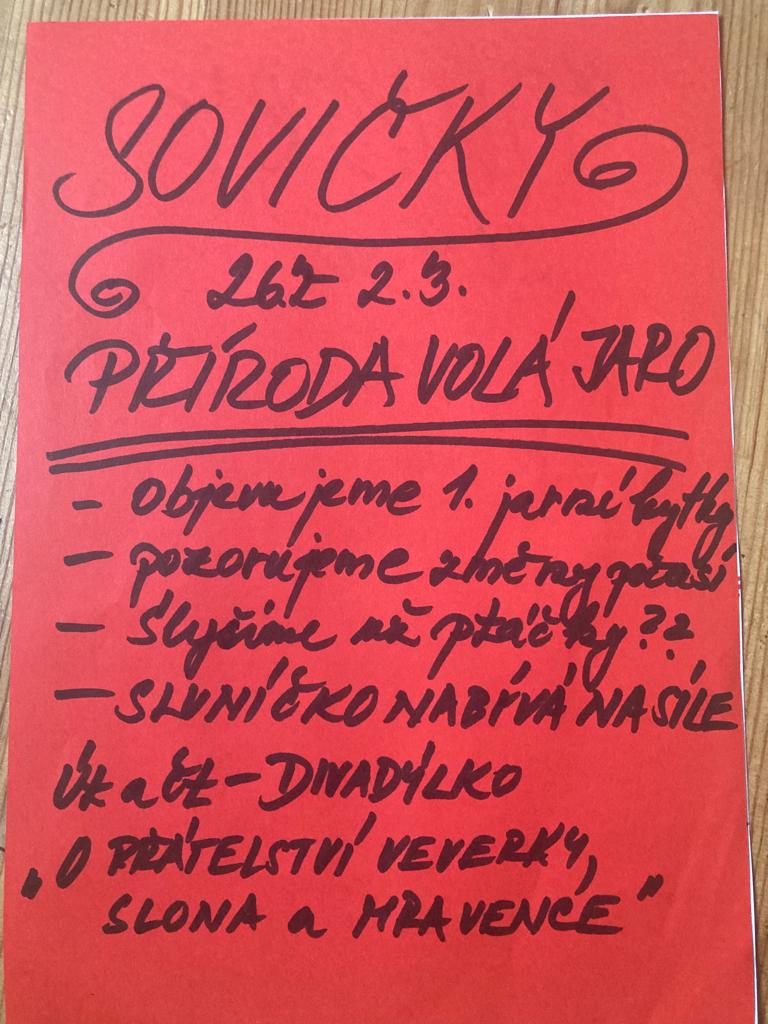 SOVIČKY
26.2 2.3.
PŘÍRODA VOLÁ JARO
- Objevujeme 1. jarní kytky
- pozorujeme změny počasí
- Slyšíme už ptáčky??
- SLUNÍČKO NABÍVÁ NA SÍLE
Út a čt - DIVADÝLKO
„O PŘÁTELSTVÍ VEVERKY,
SLONA a MRAVENCE"